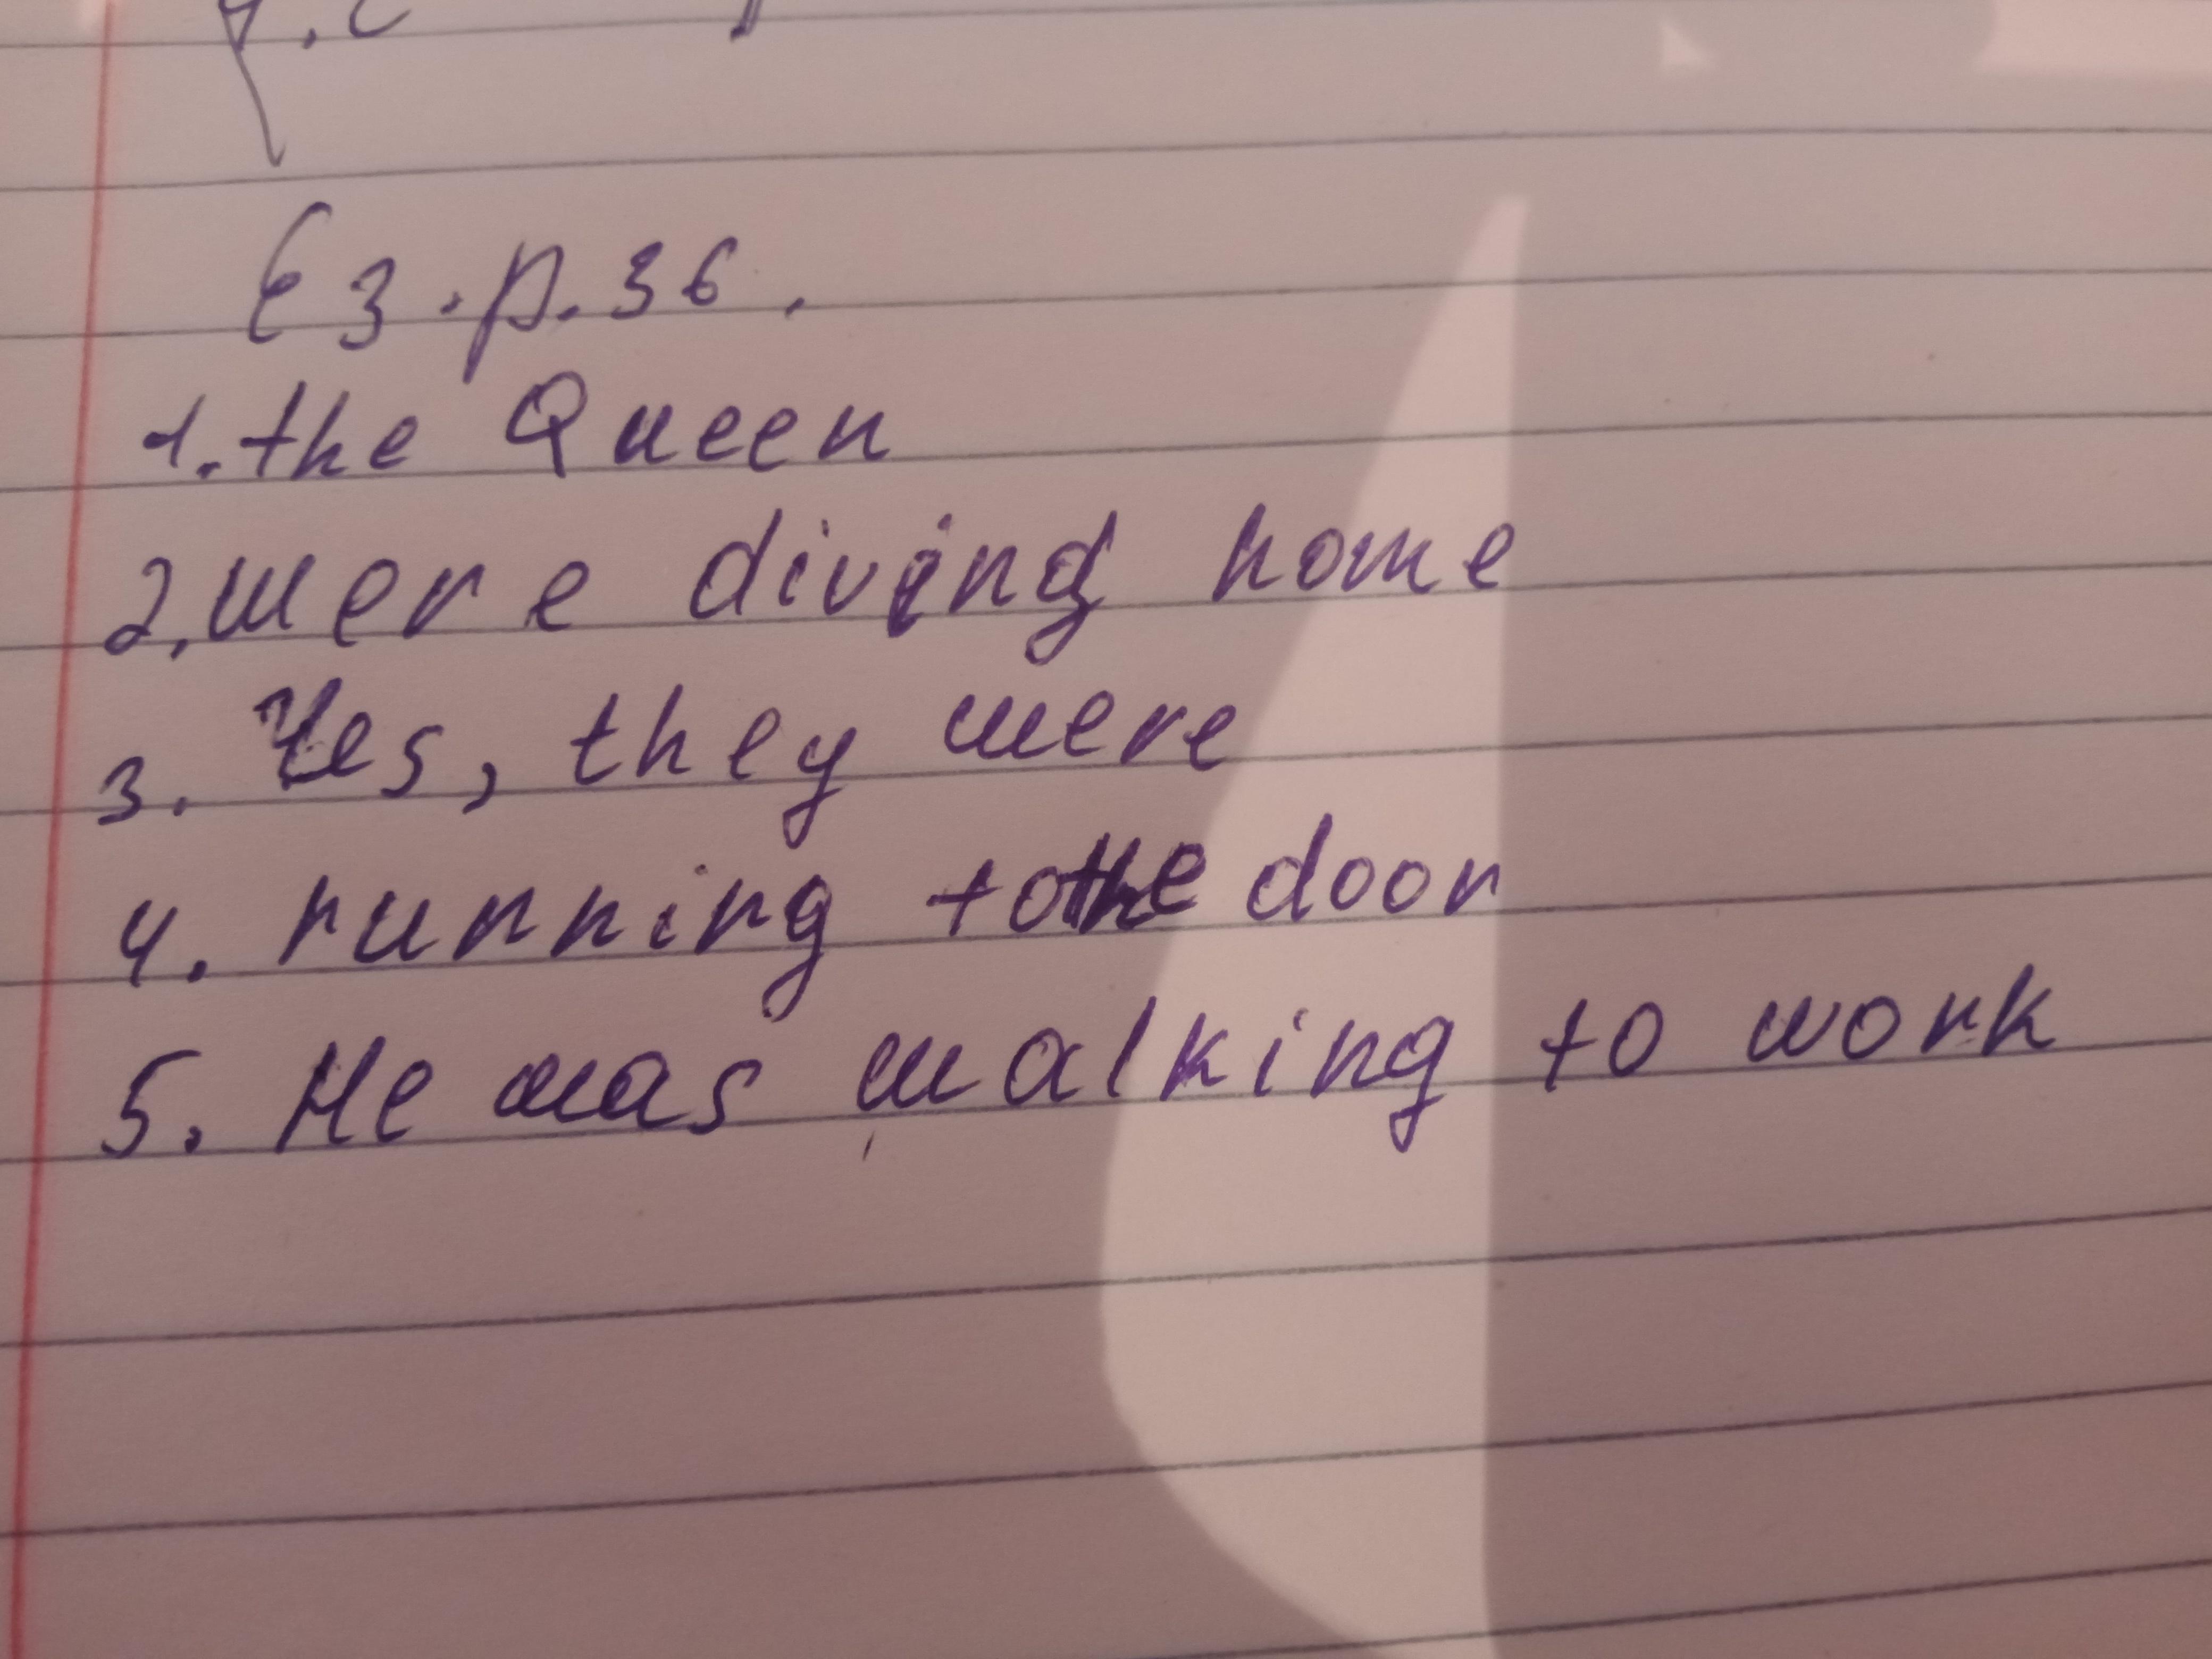 E3.p.36.
1. the Queen
2. were diving home
3. Yes, they were
4. running to the door
5. He was walking to work